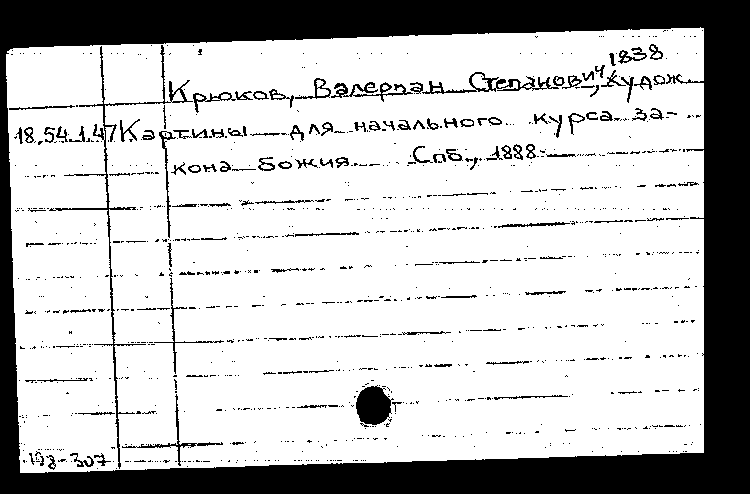 Крюков, Валериан Степанович, худож. 1838
18.54.1.47 Картины для начального курса за-
кона Божия. Спб., 1888.
198-307